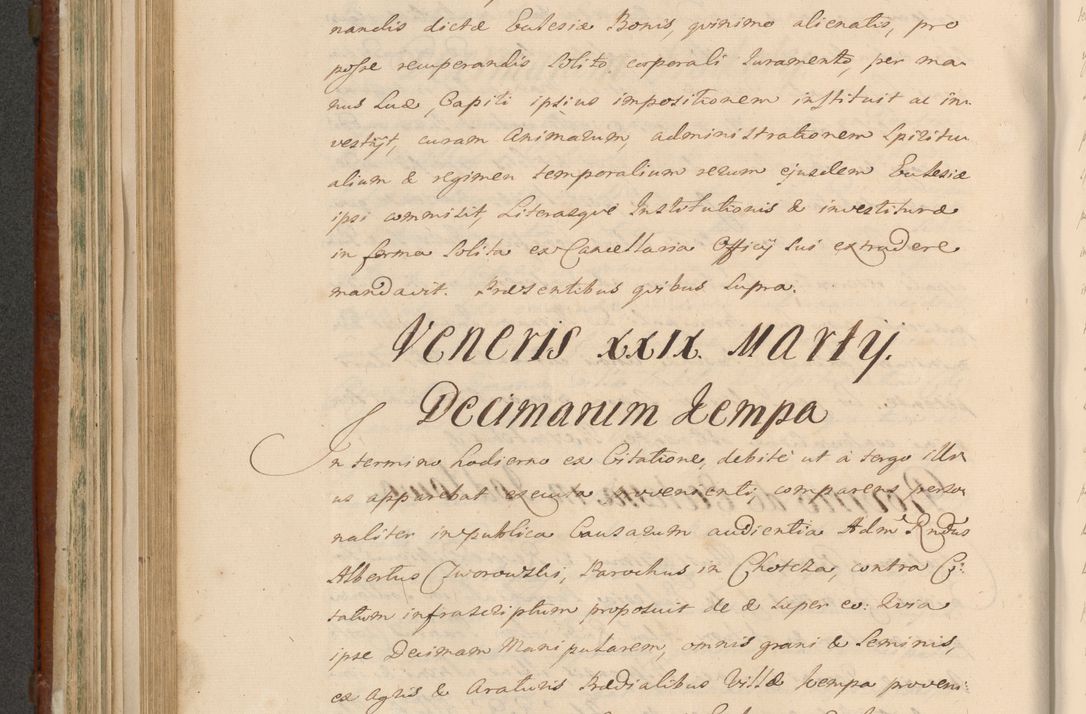 nandis dictæ Ecclesiæ Bonis, quinimo alienatis, pro
posse recuperandis solito corporali Juramento, per ma-
nus suæ, Capiti ipsius impositionem instituit ac in-
vestijt, curam Animarum, administrationem Spiritu-
alium & regimen temporalium rerum ejusdem Ecclesiæ
ipsi commisit, Literasque Institutionis & investituræ
in forma solita ex Cancellaria Officij sui extradere
mandavit. Præsentibus quibus supra.
Veneris XXIX Martij.
Decimarum Kempa
In termino hodierno ex Citatione, debitè ut à tergo illi-
us apparebat executa provenienti, comparens perso-
naliter in publica Causarum audientia Adm Rndus
Albertus Czworowski, Parochus in Chotcza, contra Ci-
tatum infrascriptum proposuit de & super eo: Quia
ipse Decimam Manipularem, omnis grani & seminis,
ex Agris & Araturis Prædialibus Villæ Kempa proveni-